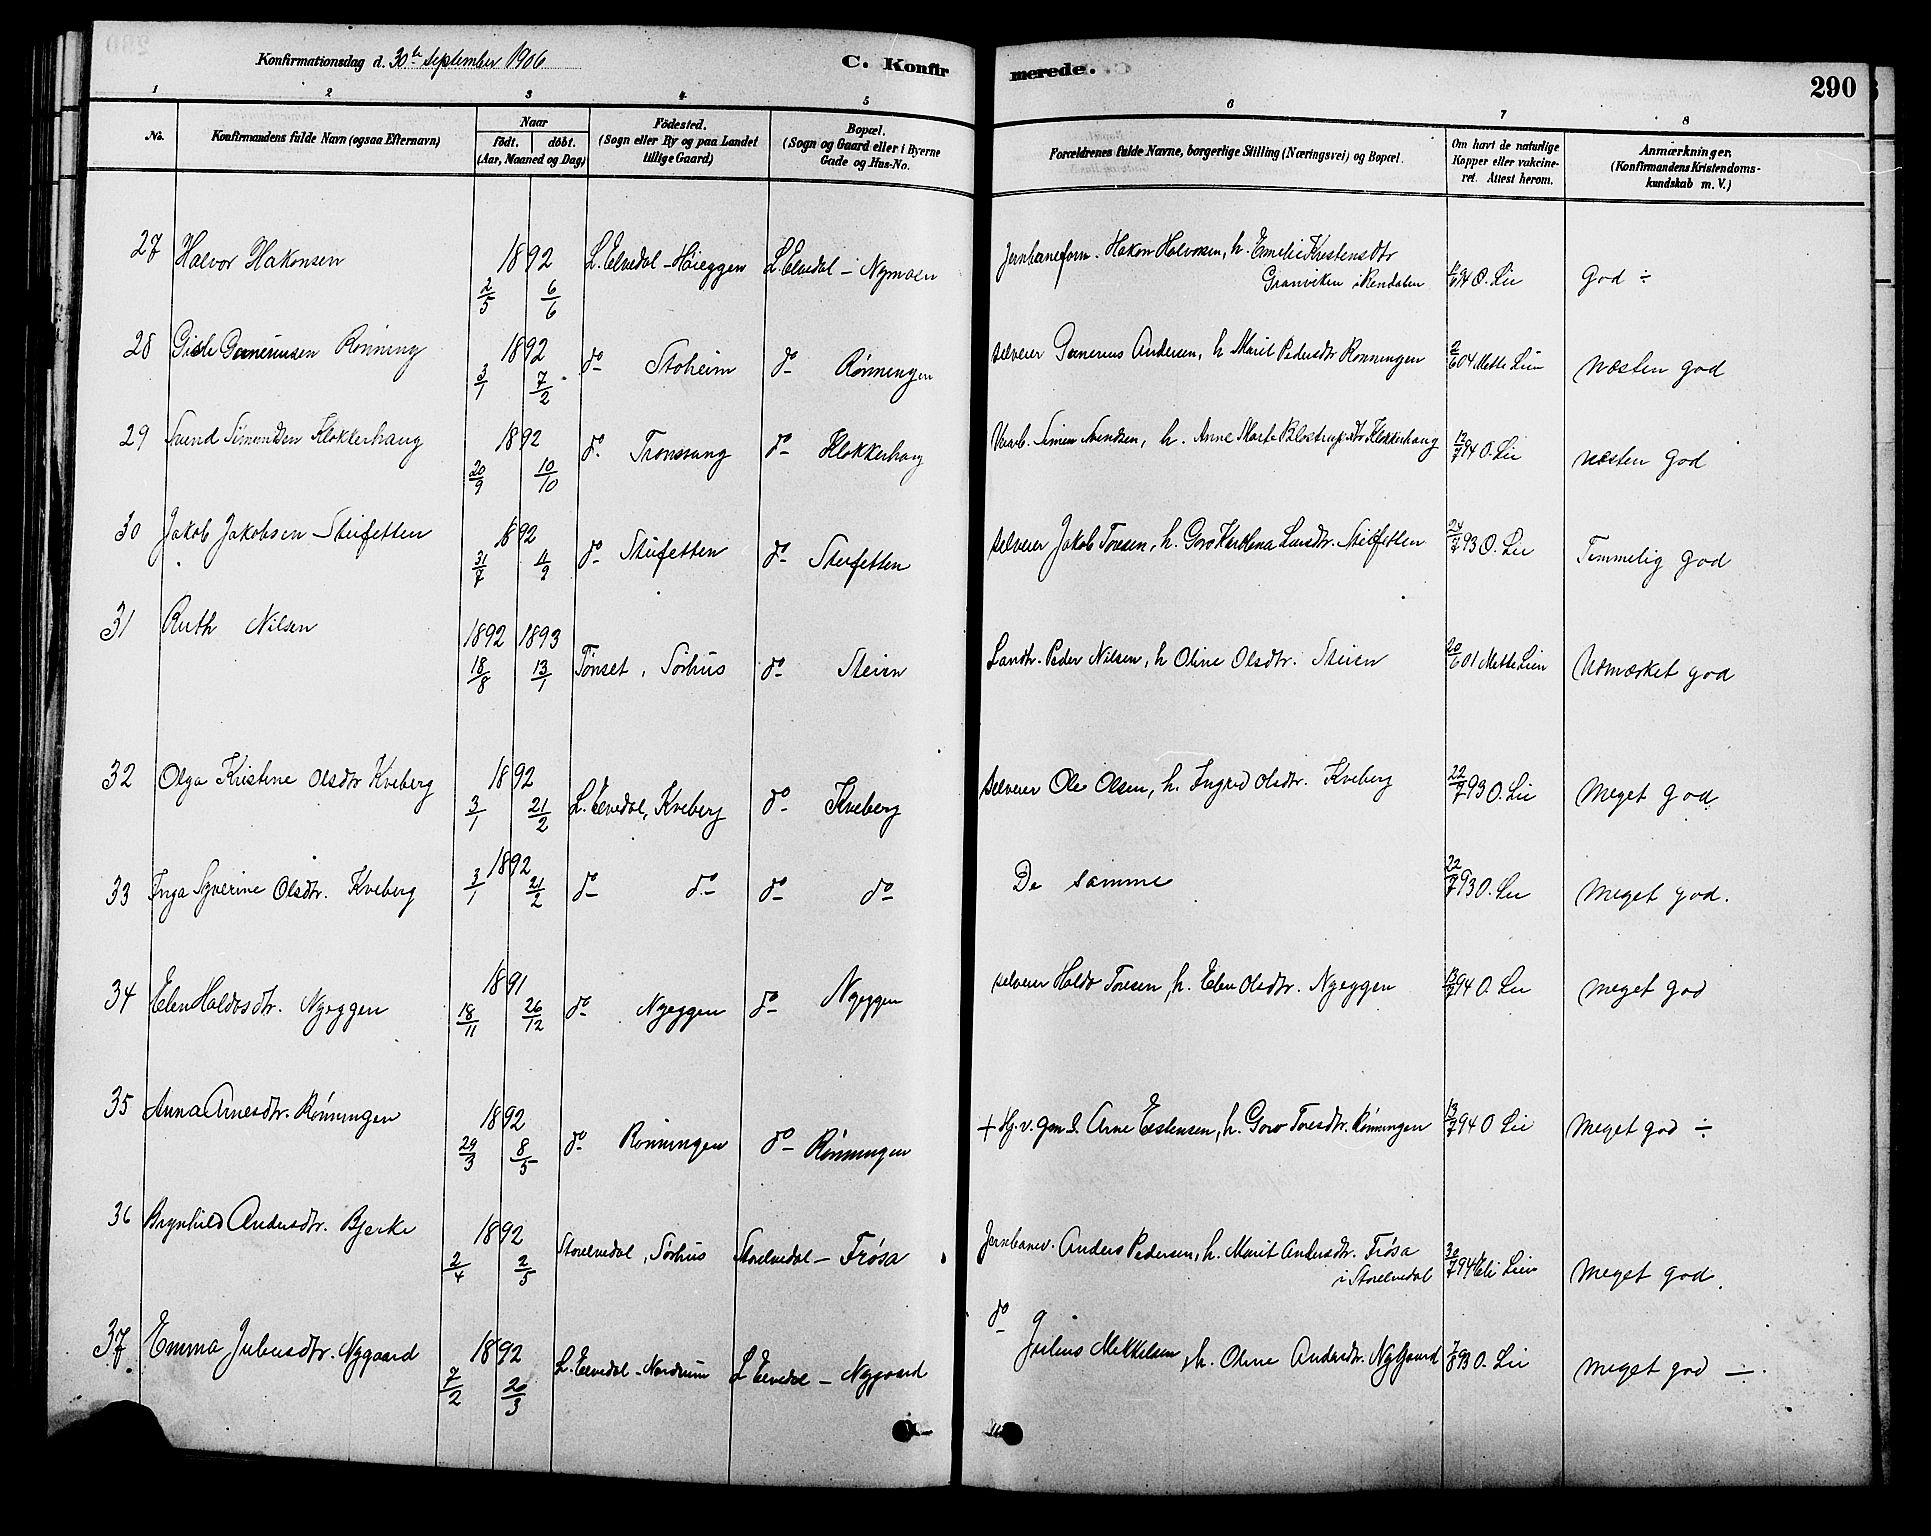 Konfirmationsdag d. 30te september 1906
C. Konfirmerede.
290
1 2 3 4 5 6 7 8
No.
Konfirmandens fulde Navn (ogsaa Efternavn)
Naar
födt. döbt.
(Aar, Maaned og Dag)
Födested.
(Sogn eller By og paa Landet
tillige Gaard)
Bopæl.
(Sogn og Gaard eller i Byerne
Gade og Hus-No.
Forældrenes fulde Navne, borgerlige Stilling (Næringsvei) og Bopæl.
Om havt de naturlige
Kopper eller vakcine-
ret. Attest herom.
Anmærkninger.
(Konfirmandens Kristendoms-
kundskab m. V.)
27 Halvor Hakonsen 1892 2/5 6/6 L. Elvedal - Höieggen L. Elvedal - Nymoen Jernbaneform. Hakon Halvorsen, h. Emelie Kristensdtr Granviken i Rendalen 94 O. Lie God ÷
28 Gisle Gunneriusen Rönning 1892 3/1 7/2 do Stoheim do Rönningen selveier Gunnerius Andersen, h Marit Pedersdtr Rönningen 2/6 04 Mette Lien næsten god
29 Svend Simensen Klokkerhaug 1892 20/9 10/10 do Tronsvang do Klokkerhaug Simen Svendsen, h. Anne Marte Klokkerhaug 13/7 94 O. Lie næsten god
30 Jakob Jakobsen Steifetten 1892 31/7 4/9 do Steifetten do Steifetten selveier Jakob Toresen, h. Goro Larsdtr. Steifetten 24/7 93 O. Lie Temmelig god
31 Ruth Nilsen 1892 18/8 1893 13/1 Tönset, Sörhus do Steien Landh. Peder Nilsen, h Oline Olsdtr. Steien 20/6 01 Mette Lien Udmærket god
32 Olga Kristine Olsdtr Kveberg 1892 3/1 21/2 L. Elvedal, Kveberg do Kveberg selveier Ole Olsen, h. Ingrid Olsdtr. Kveberg 22/7 93 O. Lie Meget god.
33 Inga Syverine Olsdtr. Kveberg 1892 3/1 21/2 do do do do De samme 22/7 93 O. Lie Meget god.
34 Elen Haldosdtr. Nyeggen 1891 18/11 26/12 do Nyeggen do Nyeggen selveier Haldo Toresen, h. Elen Olsdtr. Nyeggen 13/7 94 O. Lie meget god
35 Anna Arnesdtr. Rönningen 1892 29/3 8/5 do Rönningen do Rönningen + Hj. v. gm. S. Arne Estensen, h. Goro Toresdtr. Rönningen 13/7 94 O Lie Meget god ÷
36 Brynhild Andersdtr. Bjerke 1892 2/4 2/5 Storelvedal, Sörhus Storelvedal - Frösa Jernbanev. Anders Pedersen, h. Marit Andersdtr. Frösa i Storelvedal 30/7 94 Eli Lien Meget god.
37 Emma Juliusdtr. Nygaard 1892 7/2 20/3 L. Elvedal - Nordrum L Elvedal - Nygaard do Julius Mikkelsen, h. Oline Andersdtr. Nygaard 7/8 93 O. Lie meget god ÷